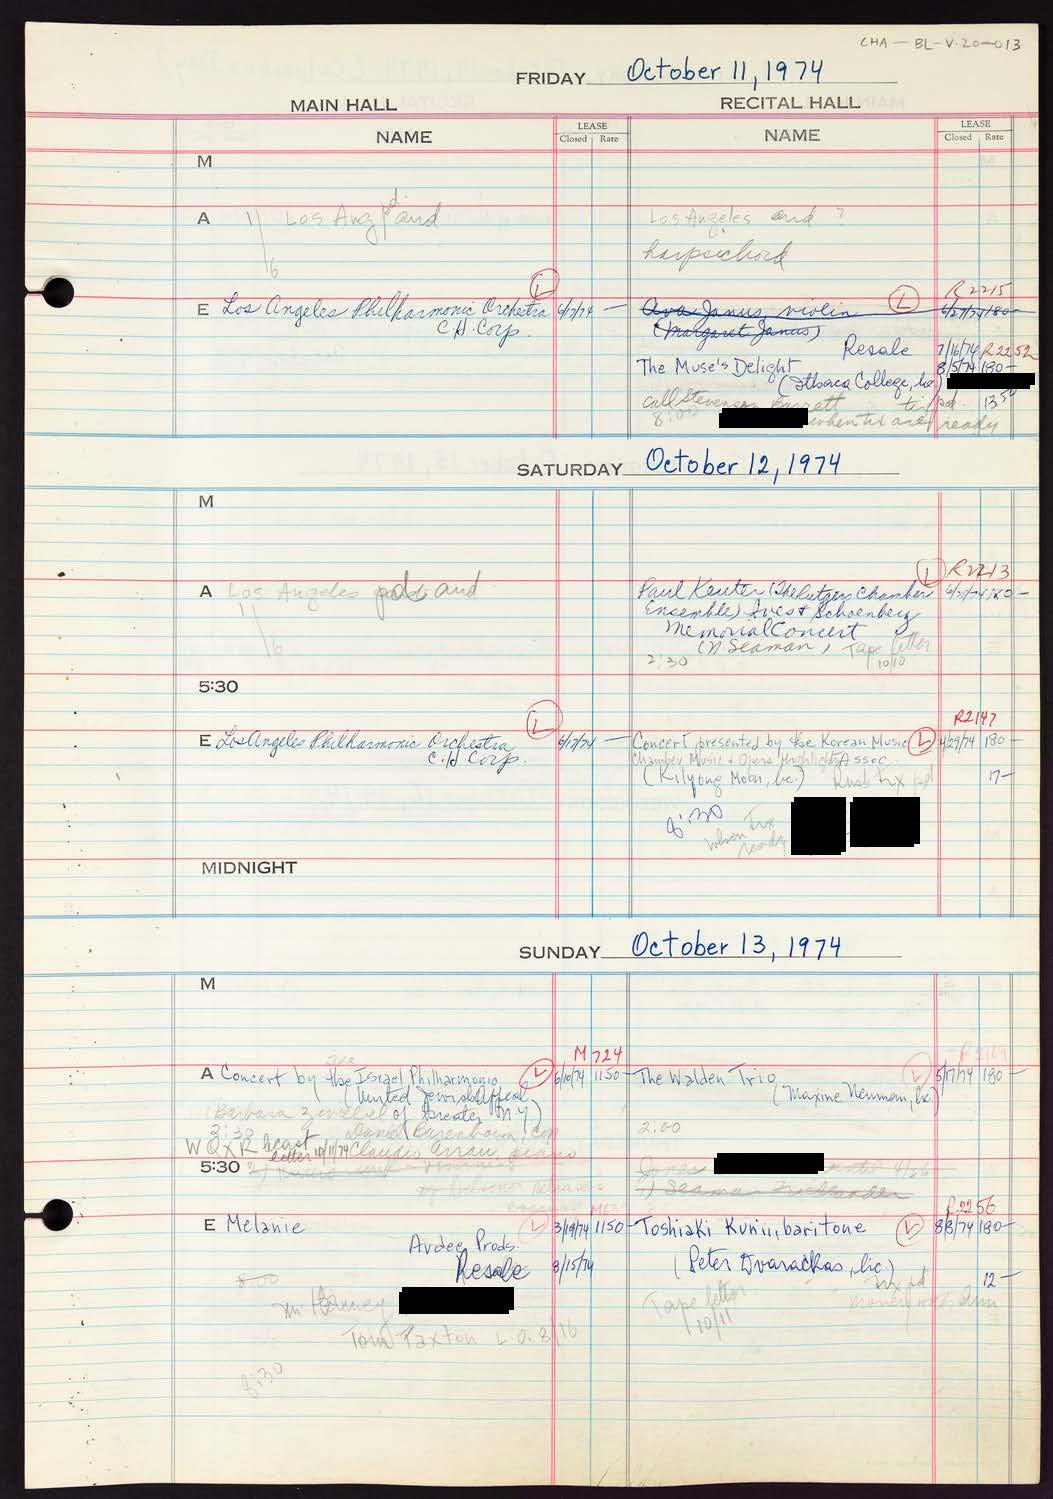 CHA - BL-V.20-013
FRIDAY October 11, 1974
MAIN HALL
RECITAL HALL
NAME
LEASE
Closed Rate
NAME
LEASE
Closed Rate
M
A 11 Los Ang pd. and
6
Los Angeles and ?
harpsichord
E Los Angeles Philharmonic Orchestra L 6/17/74 —
C.H. Corp.
R2215
Ava Janus, violin L 6/27/74 180—
(Margaret Janus)
Resale 7/16/74 R2252
The Muse's Delight 8/5/74 180—
(Ithaca College, lic.)
call Stevenson Barrett tix pd. 13.50
8:00 when tix are ready
SATURDAY October 12, 1974
M
A Los Angeles pd and
11
6
L R2213
Paul Kauter (The Rutgers Chamber
Ensemble) Ives & Schoenberg
Memorial Concert
(N Seaman)
2:30 Tape letter
10/10
5:30
E Los Angeles Philharmonic Orchestra L 6/17/74 —
C.H Corp.
R2147
Concert presented by the Korean Music L 4/29/74 180—
Chamber Music & Opera Highlights Assoc.
(Kilyong Moon, lic.) Rush tix pd 17—
8:30
when tix
ready
MIDNIGHT
SUNDAY October 13, 1974
M
M724
A Concert by the Israel Philharmonic L 6/10/74 1150—
(United Jewish Appeal
of Greater N.Y)
2:30 Daniel Barenboim, con
WQXR bcast
letter 10/11/74 Claudio Arrau, piano
The Walden Trio L 5/17/74 180—
(Maxine Neuman, lic.)
2:00
5:30
E Melanie L 3/19/74 1150—
Avdee Prods.
Resale 8/15/74
8:00
Tom Paxton L.O. 3/16
8:30
R2256
Toshiaki Kunii, baritone L 8/8/74 180—
(Peter Dvarackas, lic.)
tix pd 12—
Tape letter
10/11